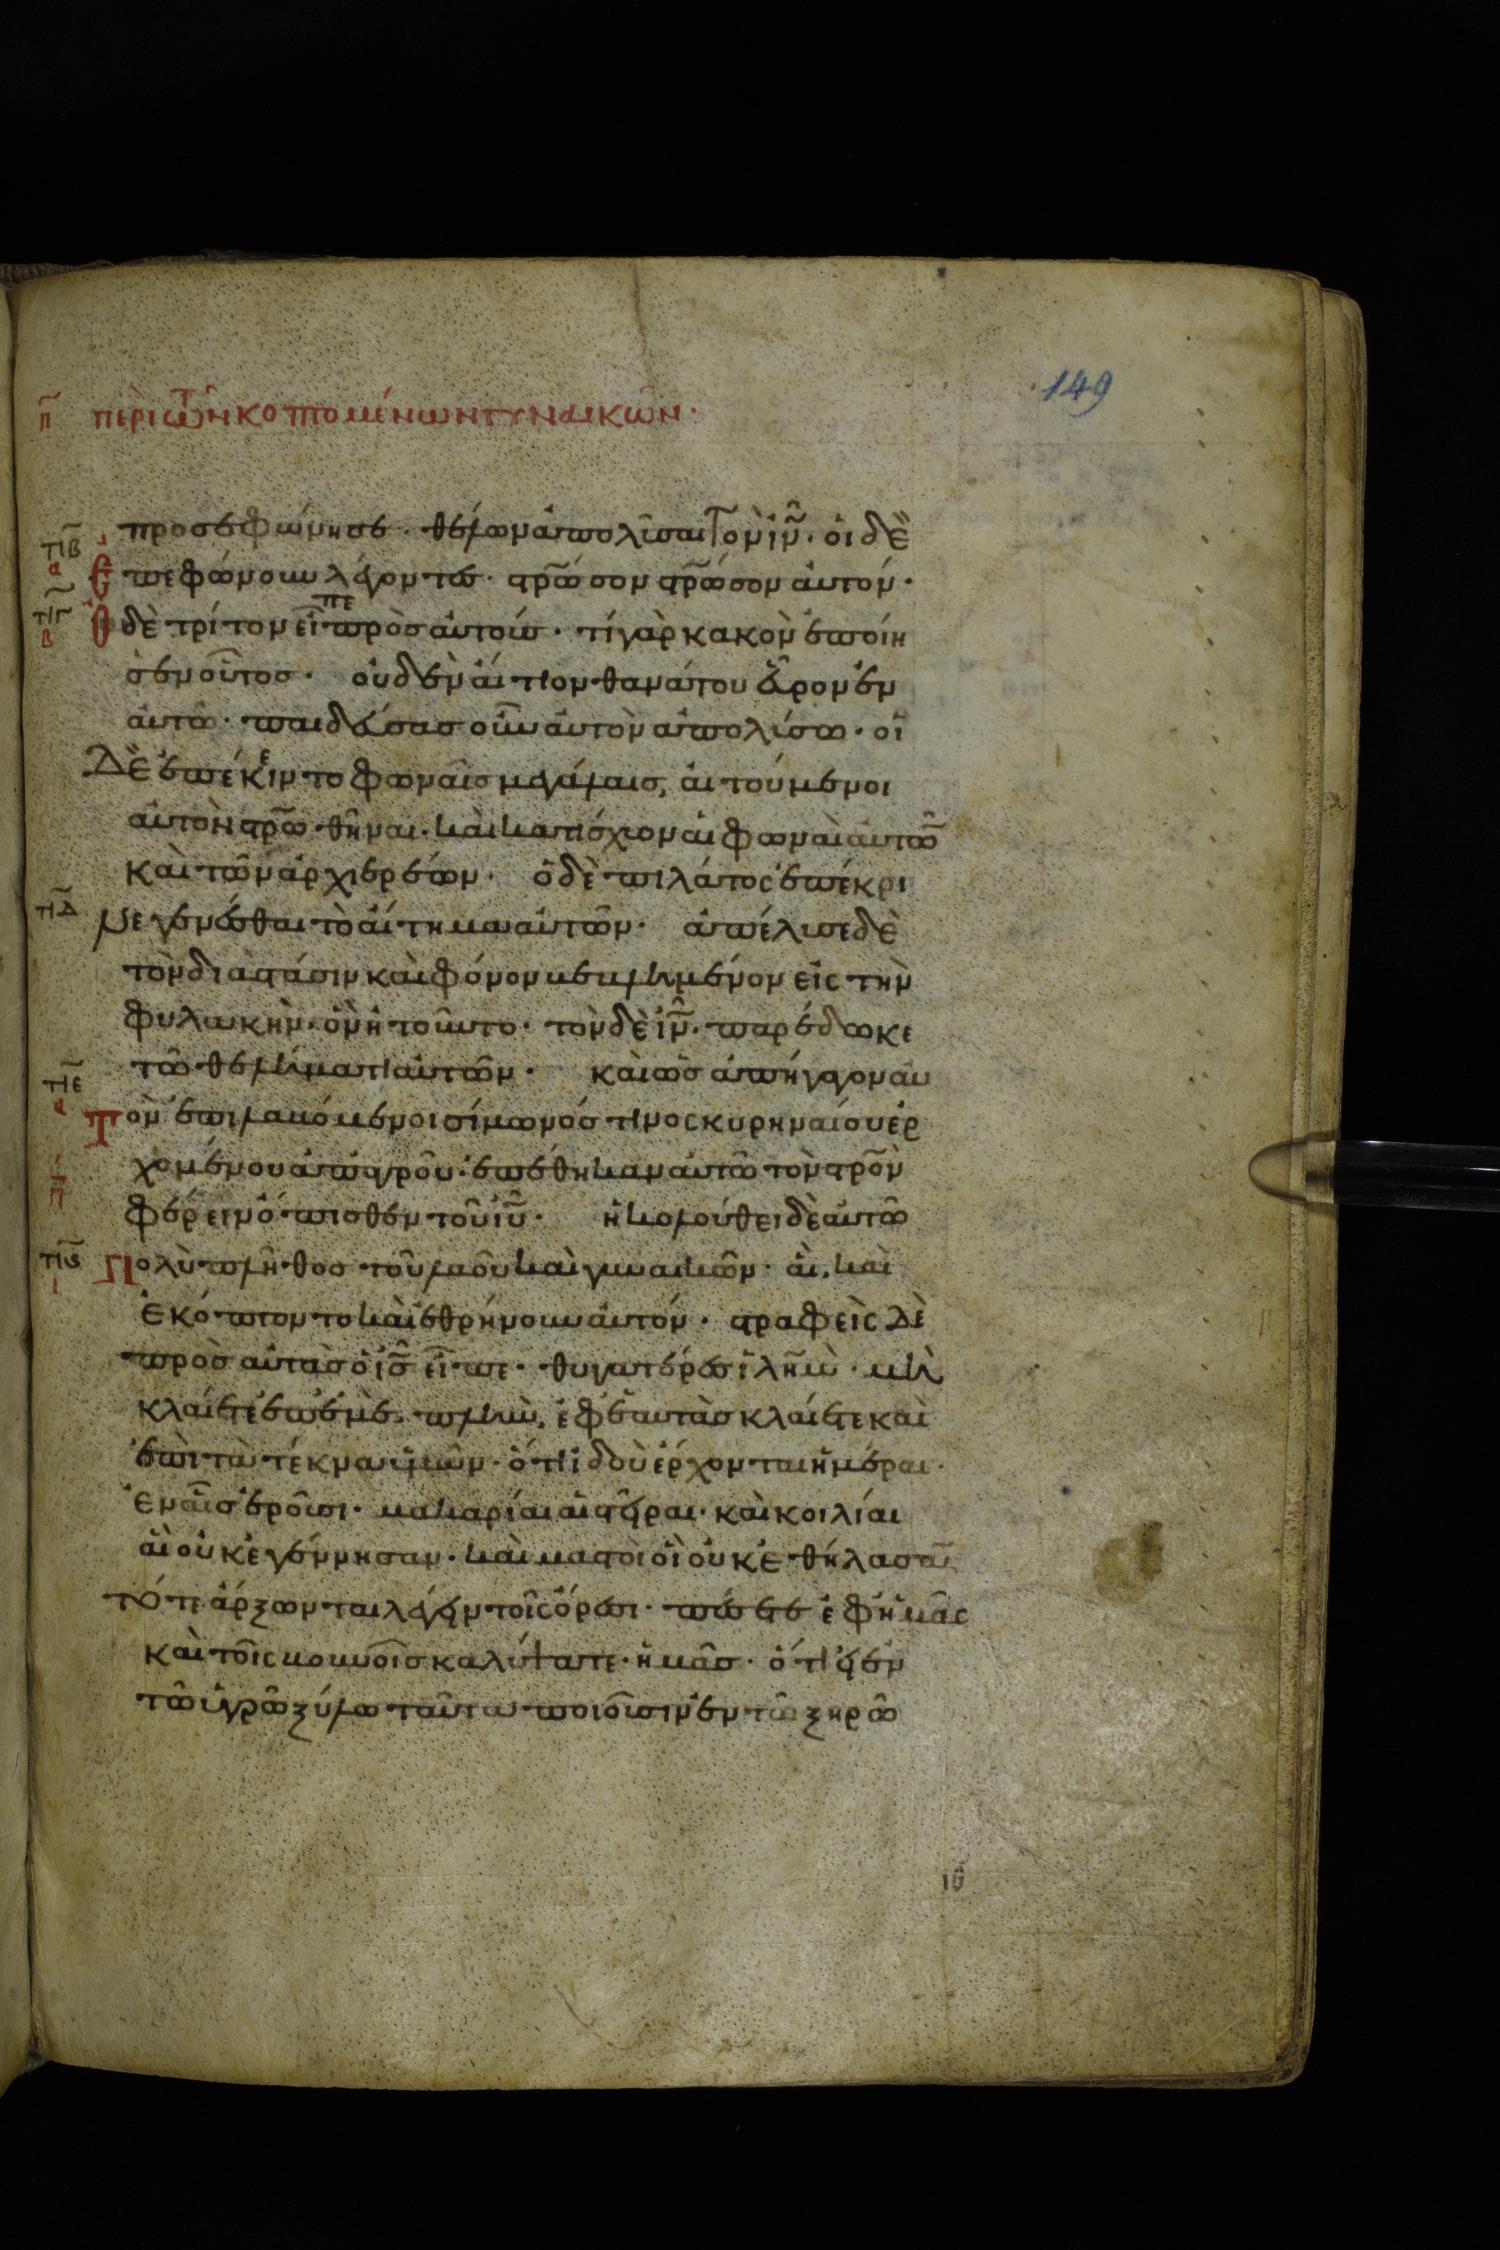 149
π̅ περὶ τῶν κοπτομένων γυναικῶν·
προσεφώνησε· θέλων ἀπολῦσαι τὸν ι̅ν̅· οἱ δὲ
τ̅ι̅β̅ α ἐπεφώνουν λέγοντες· στρω̅σον στρω̅σον αὐτόν·
τ̅ι̅γ̅ β ὁ δὲ τρίτον εἶπε πρὸς αὐτούς· τί γὰρ κακὸν ἐποίη
σεν οὗτος· οὐδὲν αἴτιον θανάτου εὗρον ἐν
αὐτῶ· παιδεύσας οὖν αὐτὸν ἀπολύσω· οἱ
δὲ ἐπέκειντο φωναῖς μεγάλαις, αἰτούμενοι
αὐτὸν στρω̅θῆναι· καὶ κατίσχυον αἱ φωναὶ αὐτῶ
καὶ τῶν ἀρχιερέων· ὁ δὲ πιλάτος ἐπέκρι
τ̅ι̅δ̅ νε γενέσθαι τὸ αἴτημα αὐτῶν· ἀπέλυσε δὲ
τὸν διὰ στάσιν καὶ φόνον βεβλημένον εἰς τὴν
φυλακὴν· ὃν ἠτοῦντο· τὸν δὲ ι̅ν̅· παρέδωκε
τῶ θελήματι αὐτῶν· καὶ ὡς ἀπήγαγον αὐ
τ̅ι̅ε̅ α τὸν ἐπιλαβόμενοι σίμωνός τινος κυρηναίου ἐρ
χομένου ἀπ ἀγροῦ· ἐπέθηκαν αὐτῶ τὸν στρο̅ν
π̅ φέρειν ὄπισθεν τοῦ ι̅υ̅· ἠκολούθει δὲ αὐτῶ
τ̅ι̅ϛ̅ ι πολὺ πλῆθος τοῦ λαοῦ καὶ γυναικῶν· αἳ, καὶ
ἐκόπτοντο καὶ ἐθρήνουν αὐτόν· στραφεὶς δὲ
πρὸς αὐτὰς ὁ ι̅ς̅ εἶπε· θυγατέρες ι̅λη̅μ· μὴ
κλαίετε ἐπ ἐμὲ. πλὴν, ἐφ ἑαυτὰς κλαίετε καὶ
ἐπὶ τὰ τέκνα ὑμῶν· ὅτι ἰδοὺ ἔρχονται ἡμέραι·
ἐν αἷς ἐροῦσι· μακαρίαι αἱ στεῖραι· καὶ κοιλίαι
αἳ οὐκ ἐγέννησαν· καὶ μαστοὶ οἳ οὐκ ἐθήλασαν
τότε ἄρξονται λέγειν τοῖς ὄρεσι· πέσετε ἐφ ἡμᾶς
καὶ τοῖς βουνοῖς καλύψατε ἡμᾶς· ὅτι εἰ ἐν
τῶ ὑγρῶ ξύλω ταῦτα ποιοῦσιν ἐν τῶ ξηρῶ
ιθ